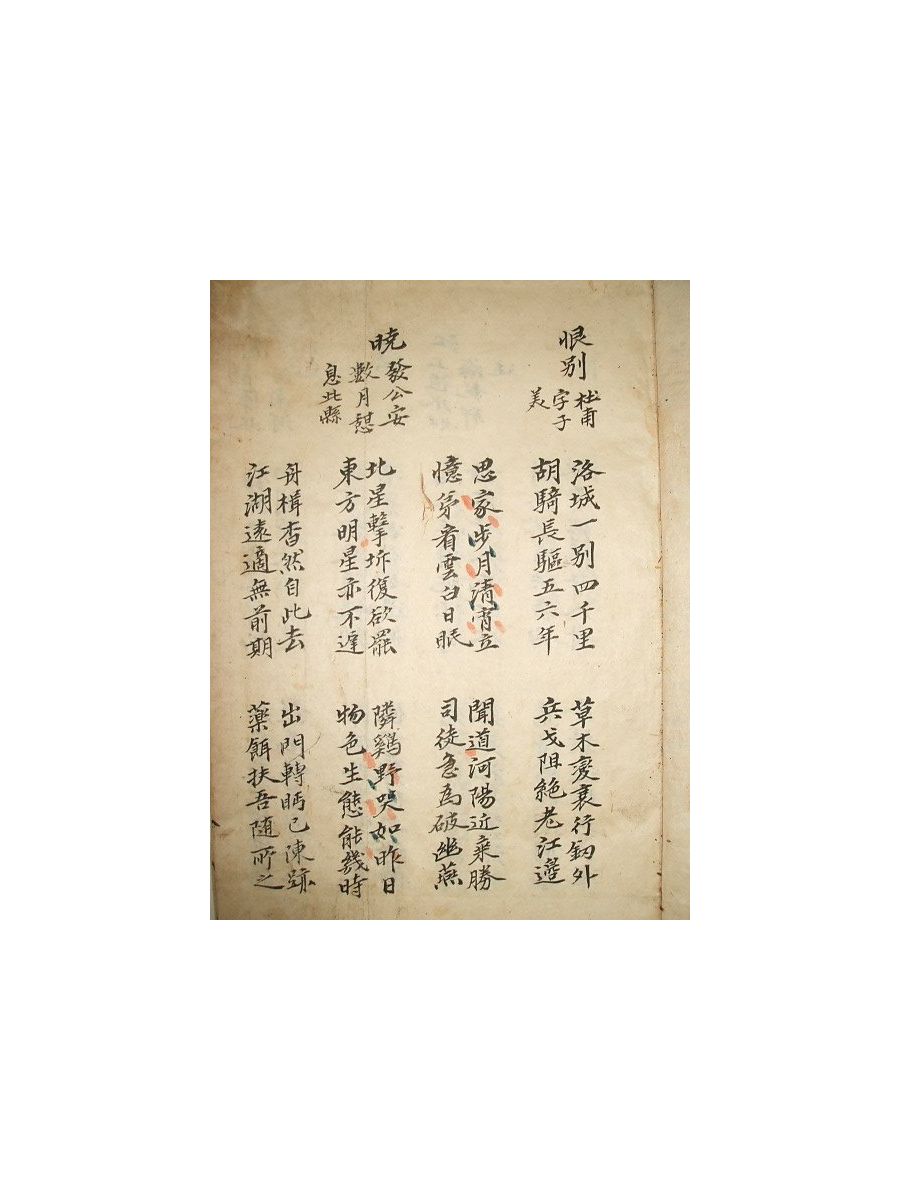 恨別
杜甫
字子
美
洛城一別四千里
胡騎長驅五六年
草木變衰行釰外
兵戈阻絶老江邊
思家步月清宵立
憶弟看雲白日眠
聞道河陽近乘勝
司徒急為破幽燕
暁
發公安
數月憇
息北縣
北星擊坼復欲罷
東方明星亦不遲
隣鷄野哭如昨日
物色生態能幾時
舟楫杳然自此去
江湖遠適無前期
出門轉眄已陳跡
藥餌扶吾随所之